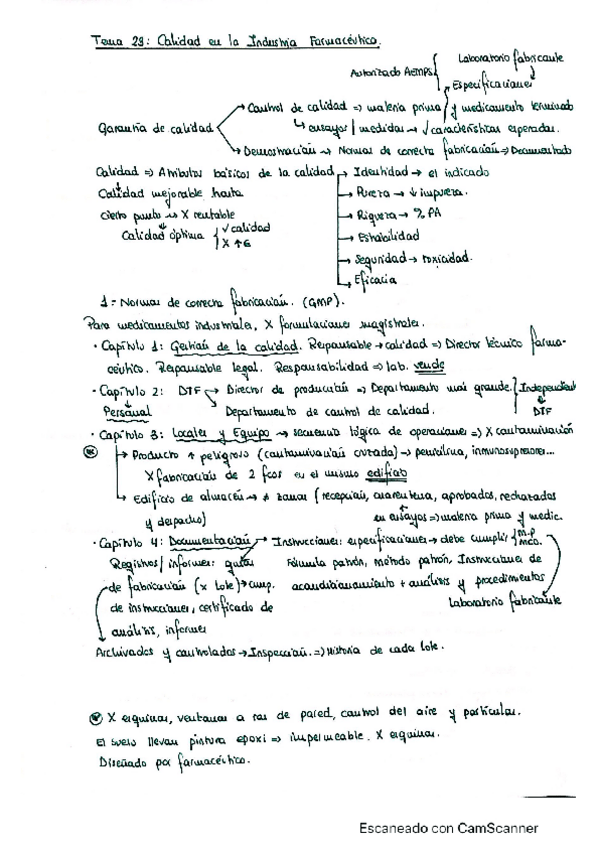 Tema 29: Calidad en la Industria Farmacéutica.
Laboratorio fabricante
Autorizado AEMPS Especificaciones
Control de calidad => materia prima y medicamento terminado
Garantía de calidad ↳ ensayos / medidas → √ características esperadas.
Demostración → Normas de correcta fabricación => Documentado
Calidad => Atributos básicos de la calidad → Identidad → el indicado
Calidad mejorable hasta → Pureza → ↓ impureza.
cierto punto → X rentable → Riqueza → % PA
Calidad óptima { √ calidad → Estabilidad
X ↑ € → Seguridad → toxicidad.
→ Eficacia
1 = Normas de correcta fabricación. (GMP).
Para medicamentos industriales, X formulaciones magistrales.
· Capítulo 1: Gestión de la calidad. Responsable → calidad => Director técnico farma-
céutico. Responsable legal. Responsabilidad => lab. vende
· Capítulo 2: DTF → Director de producción => Departamento más grande. { Independiente
Personal Departamento de control de calidad. DTF
· Capítulo 3: Locales y Equipo → secuencia lógica de operaciones => X contaminación
→ Producto ↑ peligroso (contaminación cruzada) → penicilina, inmunosupresores...
X fabricación de 2 fcos en el mismo edificio
→ Edificio de almacén → ≠ zonas (recepción, cuarentena, aprobados, rechazados
y despacho) en ensayos => materia prima y medic.
· Capítulo 4: Documentación → Instrucciones: especificaciones → debe cumplir { m.p
Registros / informes: Fórmula patrón, método patrón, Instrucciones de
de fabricación (x lote) → acondicionamiento + análisis y procedimientos
de instrucciones, certificado de Laboratorio fabricante
análisis, informes
Archivados y controlados → Inspección. => Historia de cada lote.
X esquinas, ventanas a ras de pared, control del aire y partículas.
El suelo llevan pintura epoxi => impermeable. X esquinas.
Diseñado por farmacéutico.
Escaneado con CamScanner